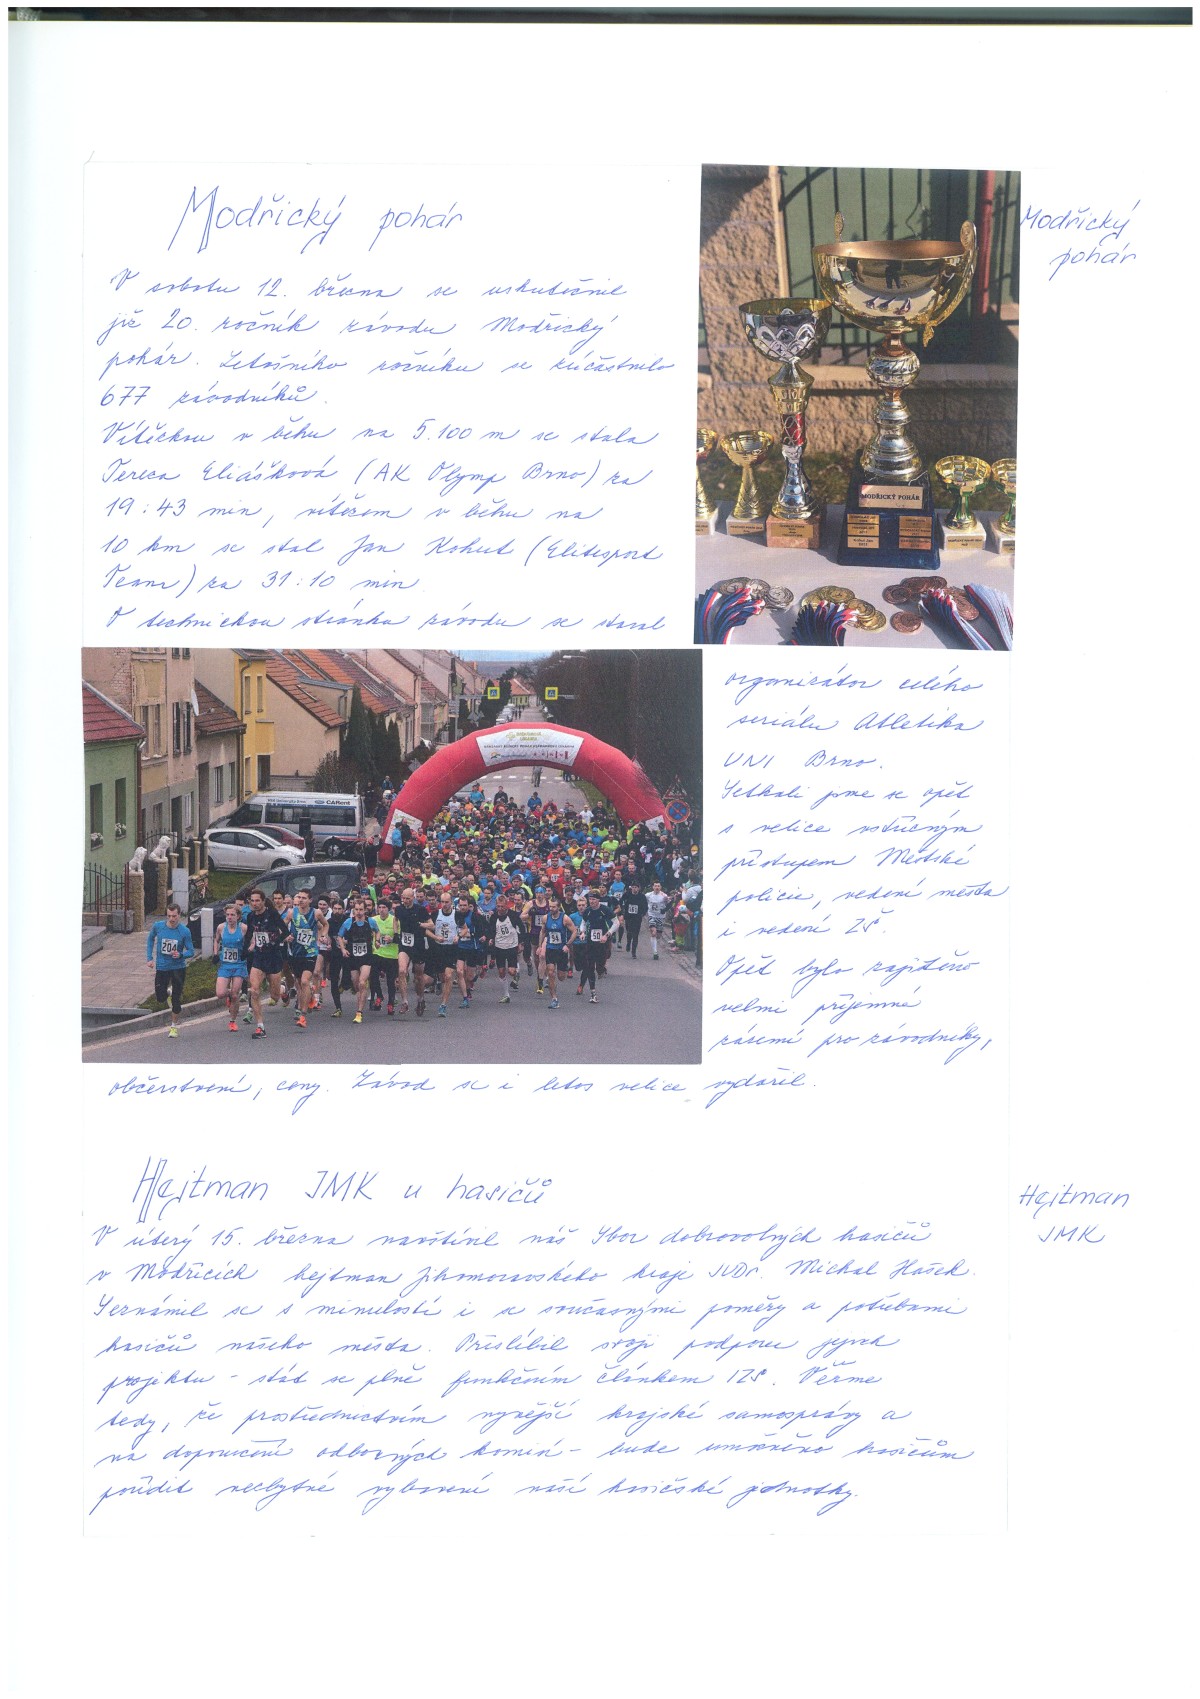 Modřický pohár
Modřický
pohár
V sobotu 12. března se uskutečnil
již 20. ročník závodu Modřický
pohár. Letošního ročníku se zúčastnilo
677 závodníků.
Vítězkou v běhu na 5.100 m se stala
Tereza Eliášková (AK Olymp Brno) za
19:43 min, vítězem v běhu na
10 km se stal Jan Kohut (Elitesport
Team) za 31:10 min
O technickou stránku závodu se staral
MODŘICKÝ POHÁR
organizátor celého
seriálu Atletika
UNI Brno.
Setkali jsme se opět
s velice vstřícným
přístupem Městské
policie, vedení města
i vedení ZŠ.
Opět bylo zajištěno
velmi příjemné
zázemí pro závodníky,
CARent
204
120
38
127
304
45
60
94
50
občerstvení, ceny. Závod se i letos velice vydařil.
Hejtman JMK u hasičů
Hejtman
JMK
V úterý 15. března navštívil náš Sbor dobrovolných hasičů
v Modřicích hejtman Jihomoravského kraje JUDr. Michal Hašek.
Seznámil se s minulostí i se současnými poměry a potřebami
hasičů našeho města. Přislíbil svoji podporu jejich
projektu - stát se plně funkčním článkem IZS. Věřme
tedy, že prostřednictvím nynější krajské samosprávy a
na doporučení odborných komisí - bude umožněno hasičům
pořídit nezbytné vybavení naší hasičské jednotky.